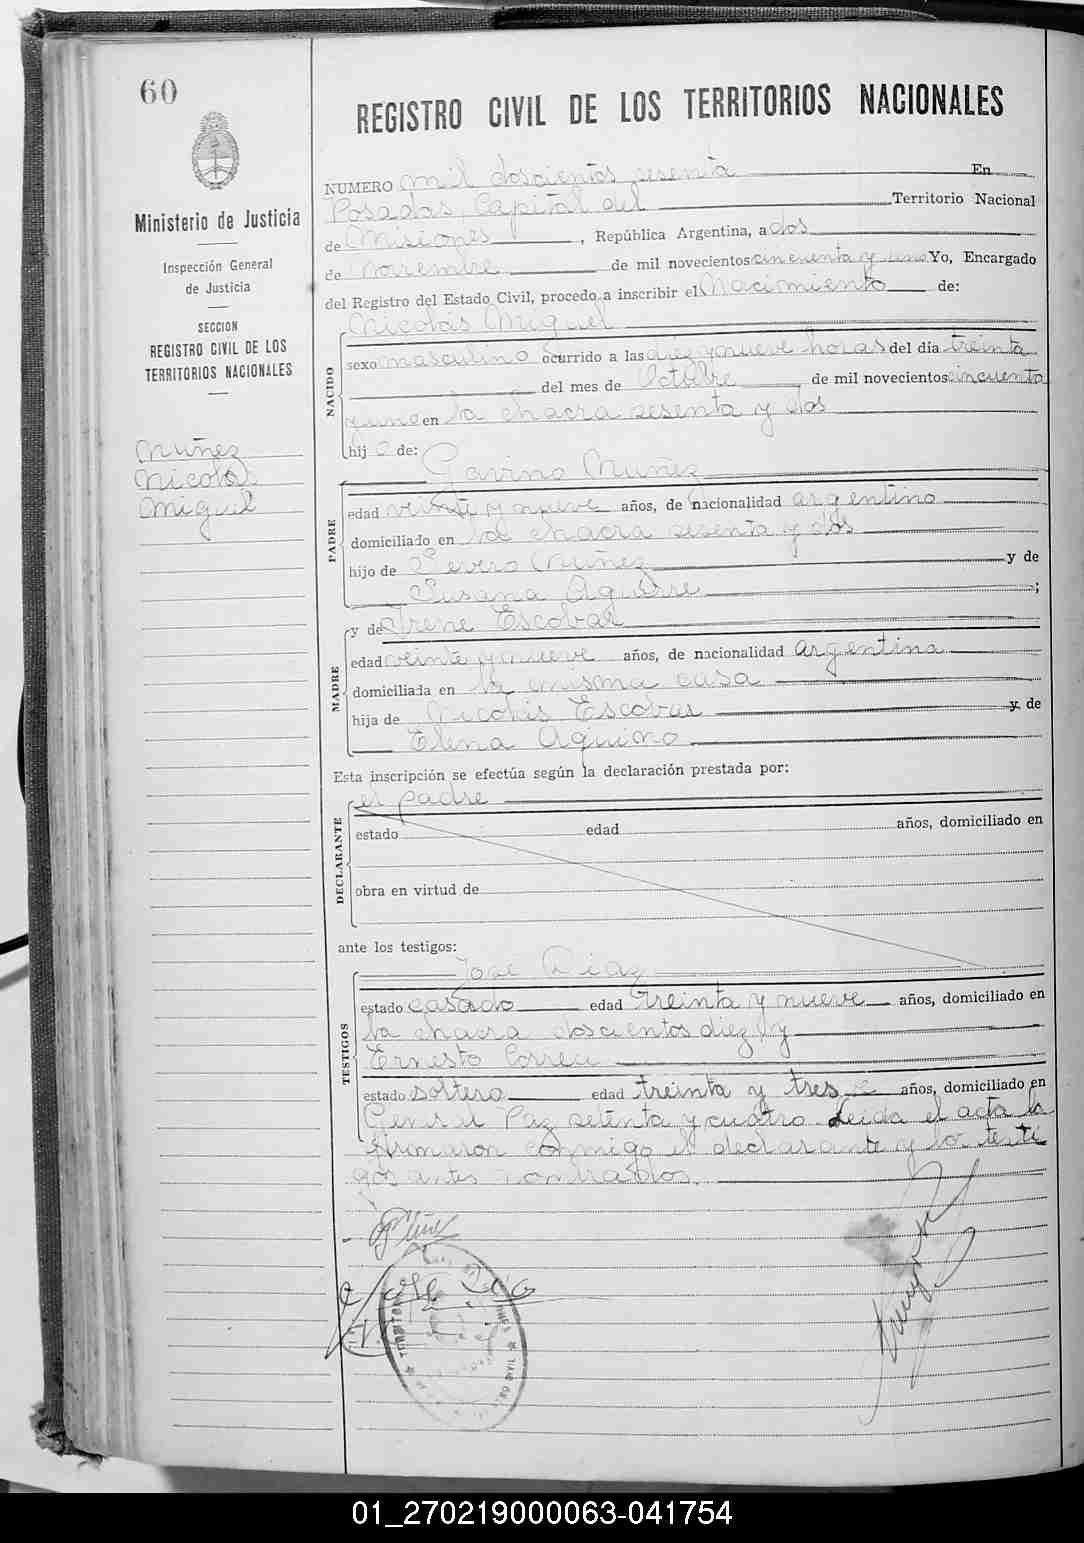 60
REGISTRO CIVIL DE LOS TERRITORIOS NACIONALES
Ministerio de Justicia
Inspección General
de Justicia
SECCION
REGISTRO CIVIL DE LOS
TERRITORIOS NACIONALES
Nuñez
Nicolás
Miguel
NUMERO mil doscientos sesenta En
Posadas, Capital del Territorio Nacional
de Misiones, República Argentina, a dos
de noviembre de mil novecientos cincuenta y uno Yo, Encargado
del Registro del Estado Civil, procedo a inscribir el Nacimiento de:
NACIDO
Nicolás Miguel
sexo masculino ocurrido a las diez y nueve horas del día treinta
del mes de Octubre de mil novecientos cincuenta
y uno en la chacra sesenta y dos
hijo de:
PADRE
Gavino Nuñez
edad veinte y nueve años, de nacionalidad argentino
domiciliado en la chacra sesenta y dos
hijo de Severo Nuñez y de
Susana Aguirre;
MADRE
y de Irene Escobar
edad veinte y nueve años, de nacionalidad argentina
domiciliada en la misma casa
hija de Nicolás Escobar y de
Elena Aquino
Esta inscripción se efectúa según la declaración prestada por:
DECLARANTE
el padre
estado edad años, domiciliado en
obra en virtud de
ante los testigos:
TESTIGOS
José Diaz
estado casado edad treinta y nueve años, domiciliado en
la chacra doscientos diez y
Ernesto Correa
estado soltero edad treinta y tres años, domiciliado en
General Paz setenta y cuatro. Leida el acta la
firmaron conmigo el declarante y los testi
gos antes nombrados.
01_270219000063-041754